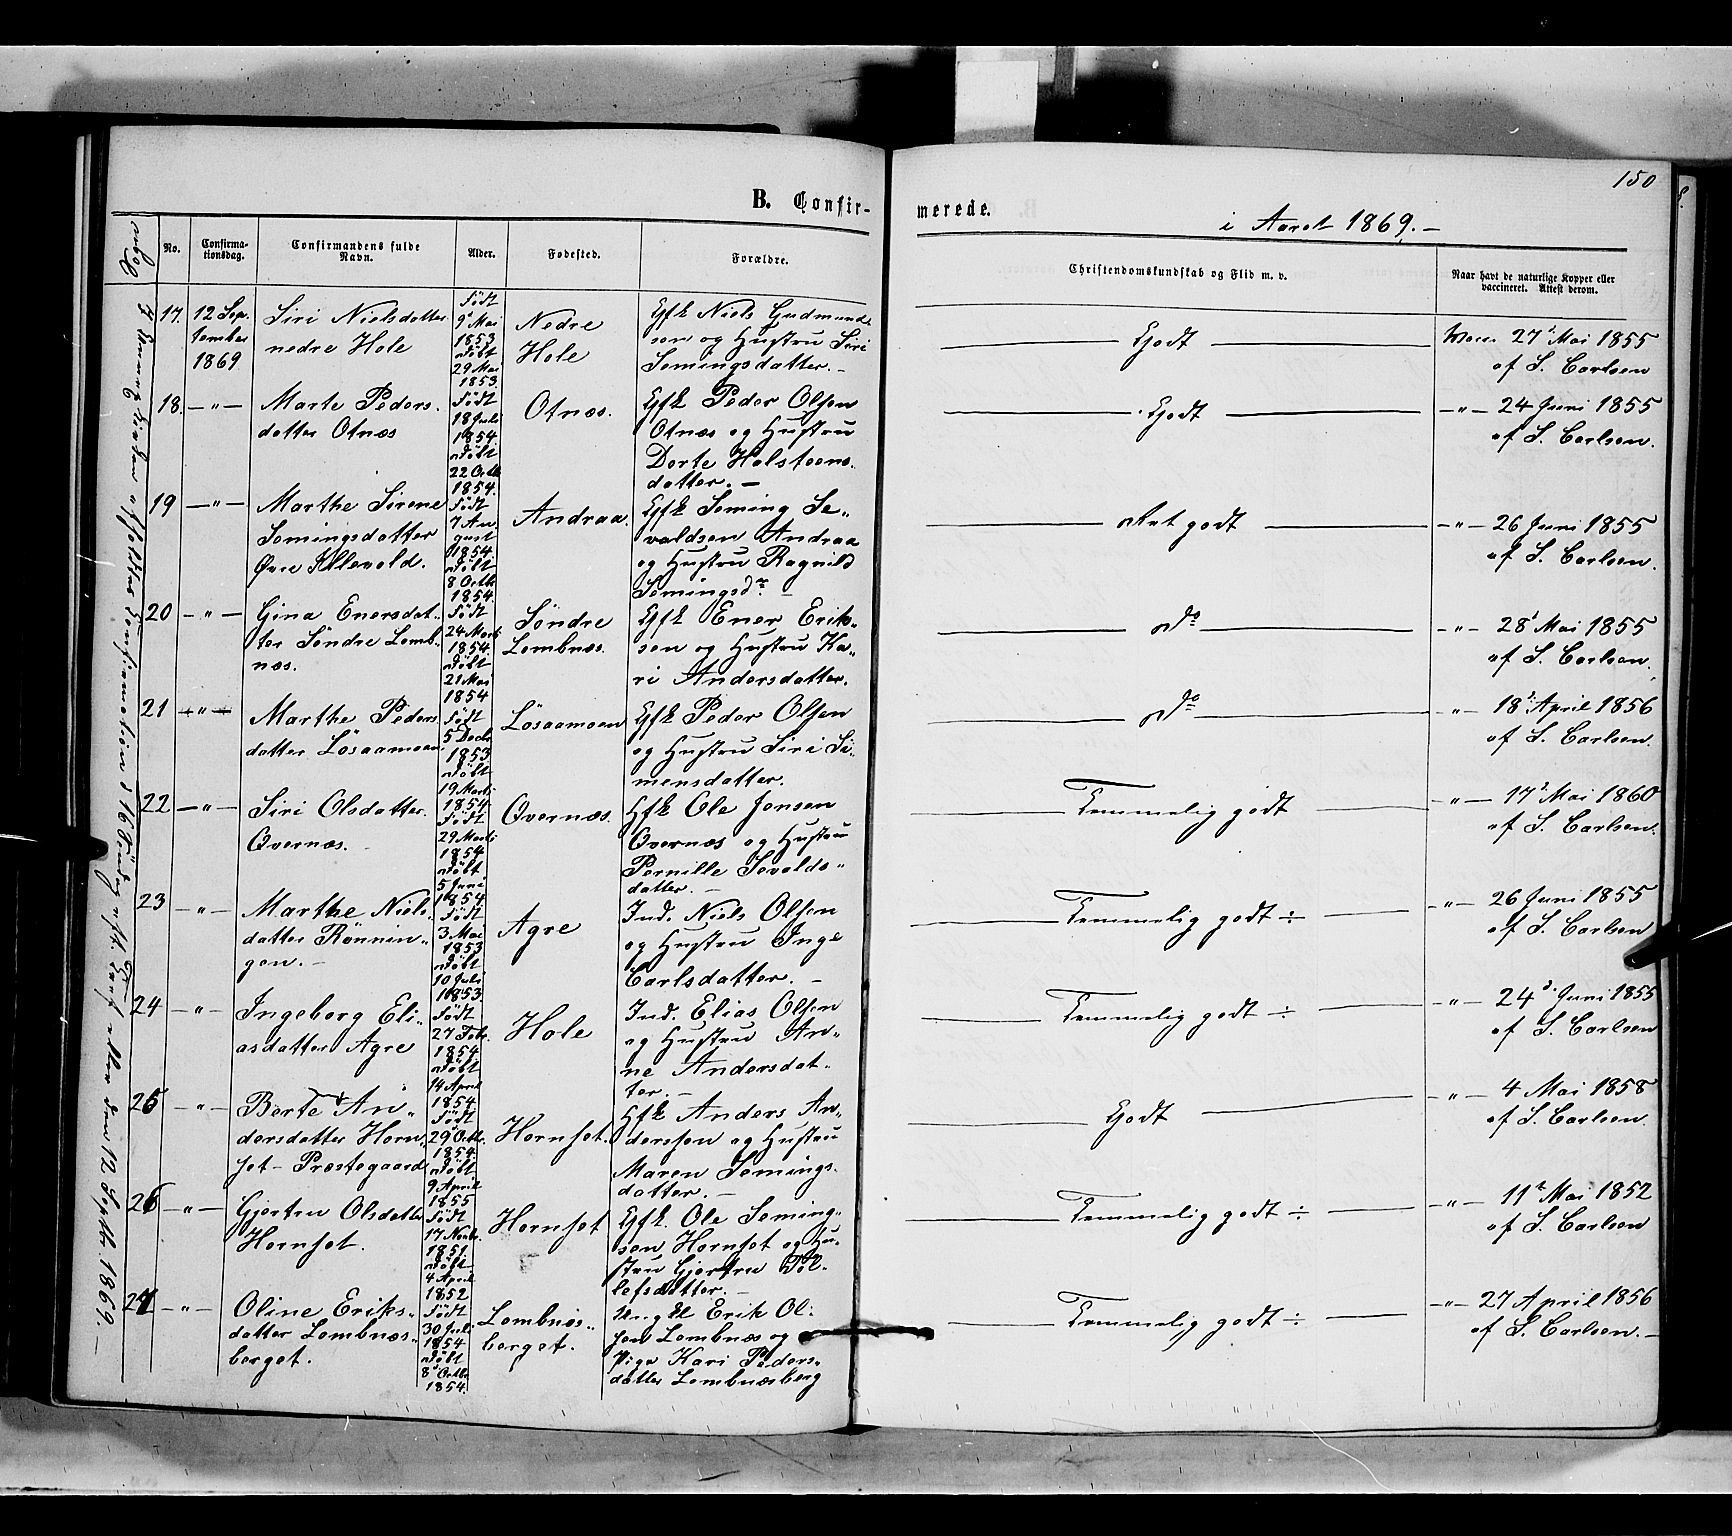 150
B. Confir-
merede.
i Aaret 1869.-
No.
Confirma-
tionsdag.
Confirmandens fulde
Navn.
Alder.
Fødested.
Forældre.
Christendomskundskab og Flid m. v.
Naar havt de naturlige Kopper eller
vaccineret. Attest derom.
17.
12 Sep.
tember
1869
Siri Nielsdatter
nedre Hole
Födt
9 Mai
1853
Döbt
29 Mai
1853.
Nedre
Hole
Gfk Niels Gudmund-
sen og Hustru Siri
Semingsdatter.-
Godt
Vacc. 27 Mai 1855
af S. Carlsen
18. -"-
Marte Peders-
datter Otnæs
Födt
18 Juli
1854.
Döbt
22 Octb
1854.
Otnæs.
Gfk Peder Olsen
Otnæs og Hustru
Dorte Halsteens-
datter.-
Godt
-"- 24 Juni 1855
af S. Carlsen.
19 -"-
Marthe Sirene
Semingsdatter
Øvre
Födt
7 Au
gust
1854.
Döbt
8 Octb
1854.
Andraa.
Gfk Seming Se-
valdsen Andraa
og Hustru Ragnild
Semingsdr -
Mut godt
-"- 26 Juni 1855
af S. Carlsen.
20 -"-
Gina Enersdat-
ter Söndre Lomb-
næs.
Födt
24 Marts
1854.
Döbt
21 Mai
1854
Söndre
Lombnæs.
Gfk Ener Erik-
sen og Hustru Ka-
ri Andersdatter.
do
-"- 28 Mai 1855
af S. Carlsen.
21 -"-
Marthe Peders
datter Lösaamoen
Födt
5 Decb
1853
Döbt
19 Marts
1854
Lösaamoen
Gfk Peder Olsen
og Hustru Siri Si-
mensdatter.
do
-"- 18 April 1856
af S. Carlsen.
22 -"-
Siri Olsdatter
Overnæs.
Födt
29 Marts
1854
Döbt
5 Juni
1854
Overnæs.
Gfk Ole Jonsen
Overnæs og Hustru
Pernille Sevalds-
datter.-
Temmelig godt
-"- 17 Mai 1860
af S. Carlsen.
23 -"-
Marthe Niels-
datter Rönnin-
gen.-
Födt
3 Mai
1853
Döbt
10 Juli
1853.
Agre
Ind. Niels Olsen
og Hustru Inge
Carlsdatter.-
Temmelig godt ÷
-"- 26 Juni 1855
af S. Carlsen
24 -"-
Ingeborg Eli-
asdatter Agre
Födt
27 Febr.
1854
Döbt
14 April
1854
Hole
Ind. Elias Olsen
og Hustru An-
ne Andersdat-
ter.-
Temmelig godt ÷
-"- 24 Juni 1855
af S. Carlsen
25 -"-
Berte An-
dersdatter Horn-
set- Præstegaard
Födt
29 Octb.
1854.
Döbt
9 April
1855
Hornset.
Gfk Anders An-
derssen og Hustru
Maren Semings-
datter.-
Godt
-"- 4 Mai 1858
af S. Carlsen.
26 -"-
Gjertru Olsdatter
Hornset.
Födt
17 Novbr.
1851.
Döbt
4 April
1852
Hornset
Gfk. Ole Seming-
sen Hornset og Hu-
stru Gjertru Tol-
lefsdatter.-
Temmelig godt ÷
-"- 11 Mai 1852
af S. Carlsen
27 -"-
Oline Eriks-
datter Lombnæs-
berget.
Födt
30 Juli
1854
Döbt
8 Octb
1854.
Lombnæs-
berget.
Ungkl Erik Ol-
sen Lombnæs og
Pige Kari Peders-
datter Lombnæsberg
Temmelig godt ÷
-"- 27 April 1856
af S. Carlsen.-
12 Septb 1869.-